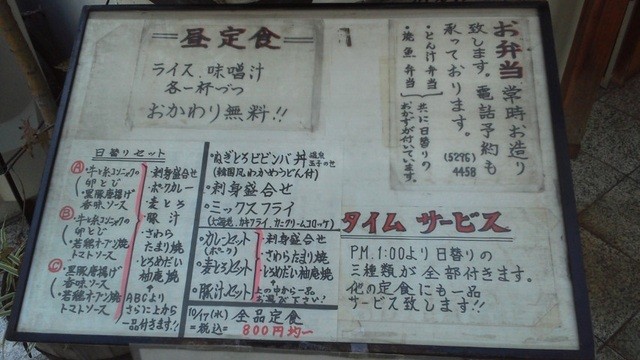 昼定食
ライス、味噌汁
各一杯づつ
おかわり無料!!
お弁当 常時お造り
致します。電話予約も
承っております。
(5296)
4458
・とんけ弁当
・焼魚弁当
共に日替りの
おかずが付いています。
日替りセット
Ⓐ・牛と糸コンニャクの
卵とじ
・黒豚唐揚げ
香味ソース
Ⓑ・牛と糸コンニャクの
卵とじ
・若鶏オーブン焼
トマトソース
Ⓒ・黒豚唐揚げ
香味ソース
・若鶏オーブン焼
トマトソース
・刺身盛合せ
・ポークカレー
・麦とろ
・豚汁
・さわら
たまり焼
・とろめだい
柚庵焼
ABCより
さらに上から
一品付きます!!
・ねぎとろビビンバ丼 温泉玉子のせ
(韓国風わかめうどん付)
・刺身盛合せ
・ミックスフライ
(大海老、カキフライ、カニクリームコロッケ)
・カレーセット
(ポーク)
・麦とろセット
・豚汁セット
・刺身盛合せ
・さわらたまり焼
・とろめだい柚庵焼
上の中から一品
お選び下さい!
10/17(水) 全品定食
=税込= 800円均一
タイム サービス
PM.1:00より日替りの
三種類が全部付きます。
他の定食にも一品
サービス致します!!